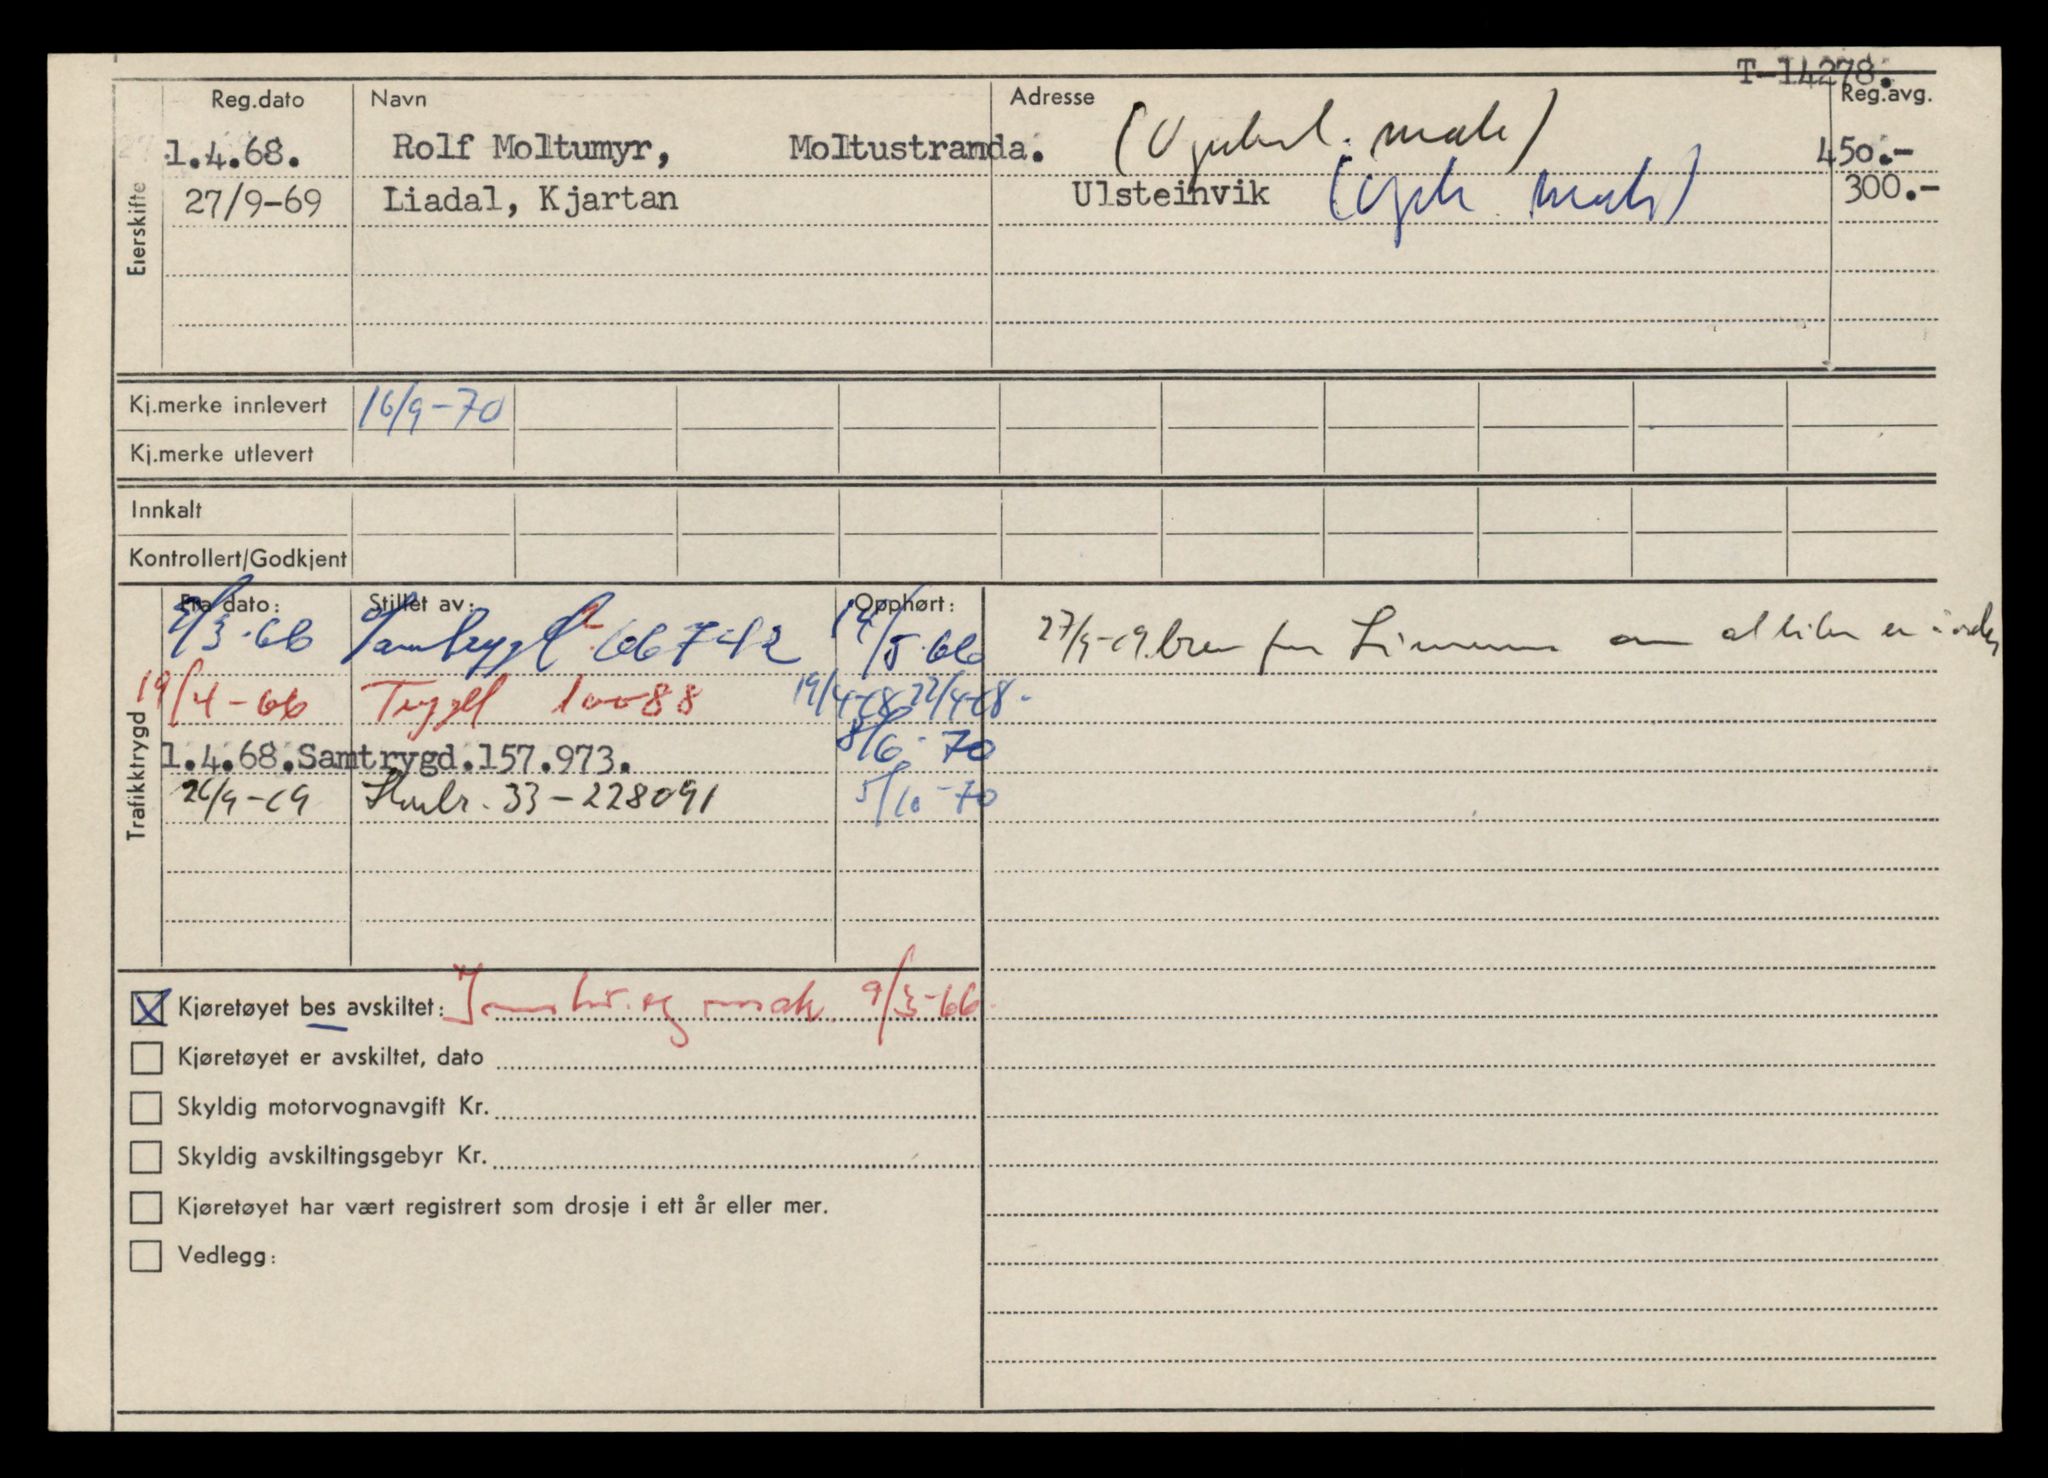 T-14278.
Reg.dato Navn Adresse Reg.avg.
Eierskifte
1.4.68. Rolf Moltumyr, Moltustranda. 450.-
27/9-69 Liadal, Kjartan Ulsteinvik 300.-
Kj.merke innlevert 16/9-70
Kj.merke utlevert
Innkalt
Kontrollert/Godkjent
Trafikktrygd
Fra dato: Stillet av: Opphørt:
/3-66 Samtrygd 66742 14/5-66
27/9-69 brev fra om at bilen er i orden
19/4-66 Trygd 10088 19/4-68 22/4-68.
1.4.68. Samtrygd.157.973. 8/6-70
26/9-69 Storbr. 33-228091 5/10-70
Kjøretøyet bes avskiltet: og 9/3-66.
Kjøretøyet er avskiltet, dato
Skyldig motorvognavgift Kr.
Skyldig avskiltingsgebyr Kr.
Kjøretøyet har vært registrert som drosje i ett år eller mer.
Vedlegg: